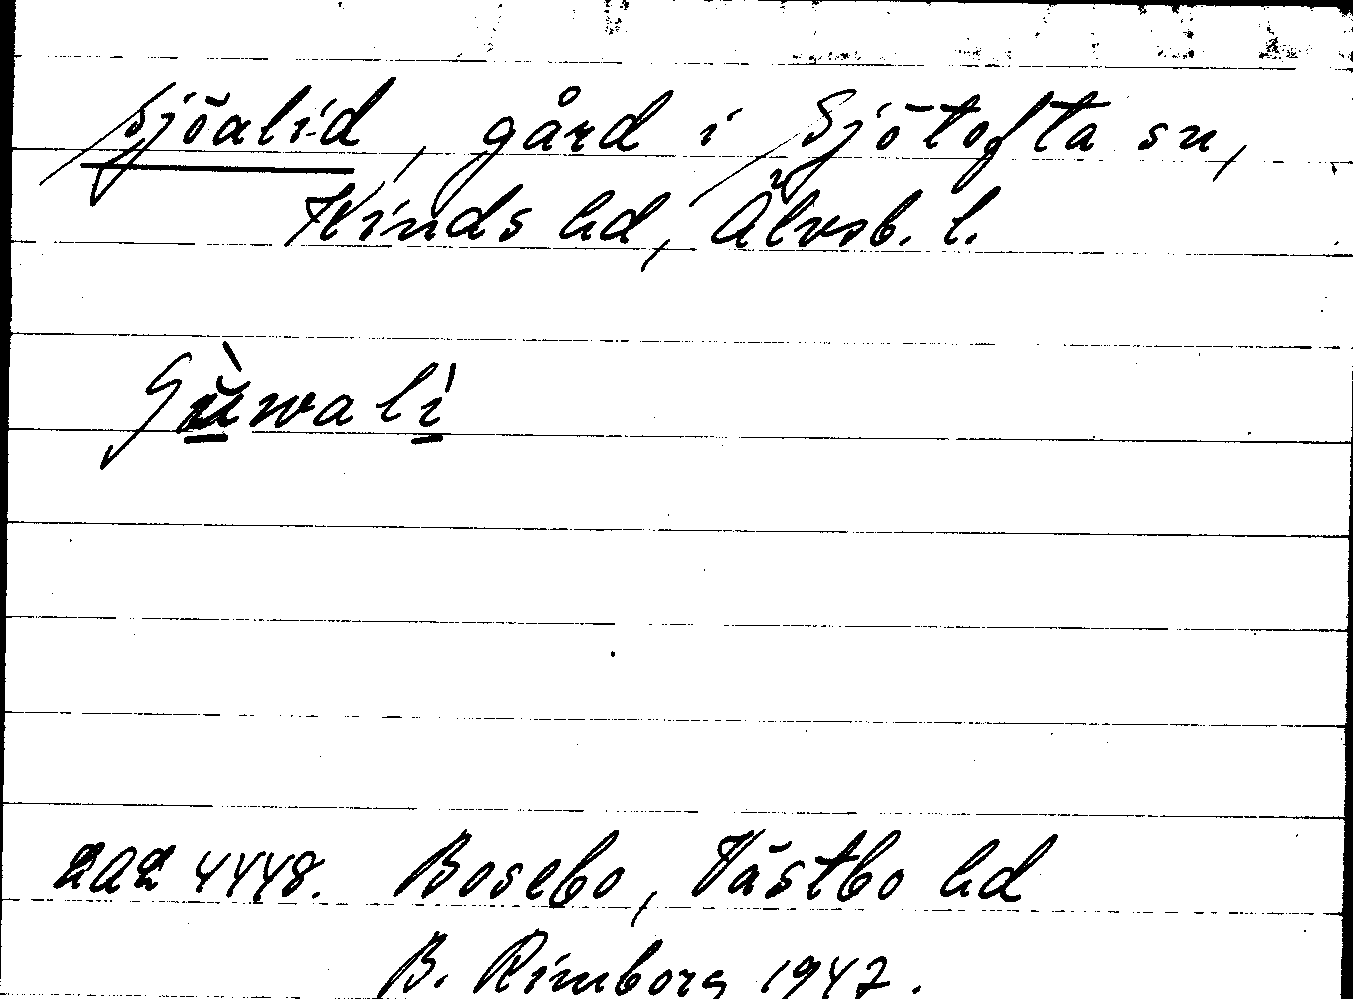 Sjöalid, gård i Sjötofta sn,
Kinds hd, Älvsb. l.
4448. Bosebo, Västbo hd
B. Rimborg 1947.